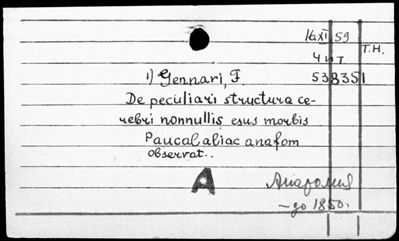 16 XI 59
Т.Н.
ЧИТ
1) Gennari, F. 53 8351
De peculiari structura ce-
rebri nonnullis esus morbis
Paucal aliac anafom
observat..
A
Анатомия
- до 1850.